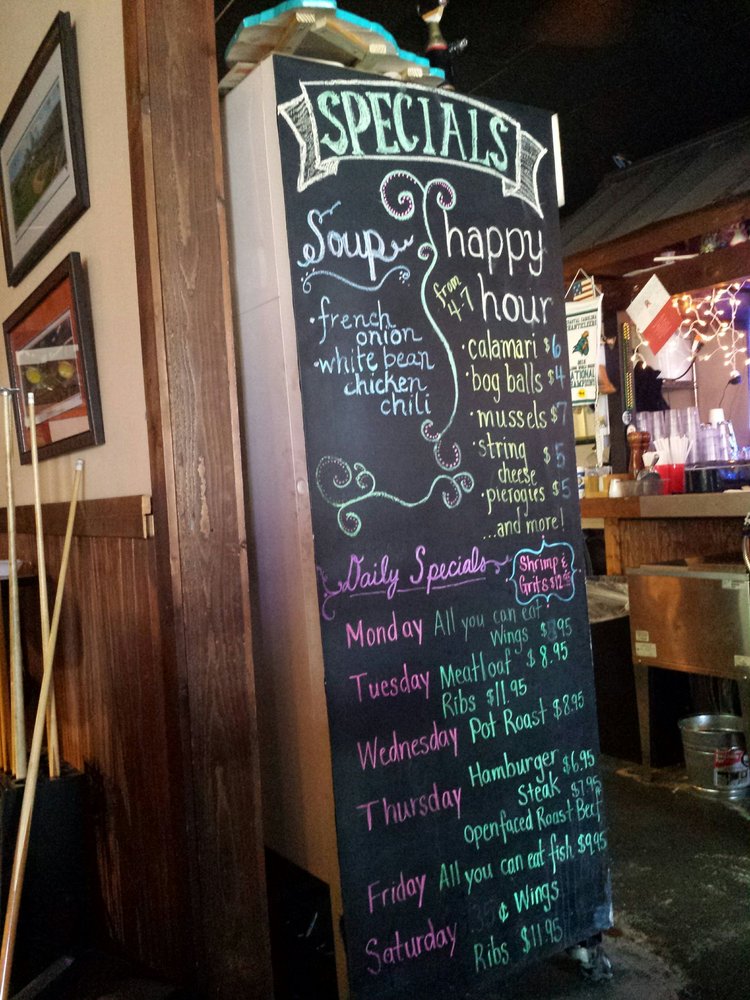 SPECIALS
Soup
·french
onion
·white bean
chicken
chili
happy
hour
from
4-7
·calamari $6
·bog balls $4
·mussels $7
·string
cheese $5
·pierogies $5
...and more!
Daily Specials
Shrimp &
Grits $12
Monday All you can eat
Wings
Tuesday Meatloaf $8.95
Ribs $11.95
Wednesday Pot Roast $8.95
Thursday Hamburger
Steak $6.95
Openfaced Roast Beef $7.95
Friday All you can eat fish $9.95
Saturday 35¢ Wings
Ribs $11.95
COASTAL CAROLINA
CHANTICLEERS
NATIONAL
CHAMPIONS